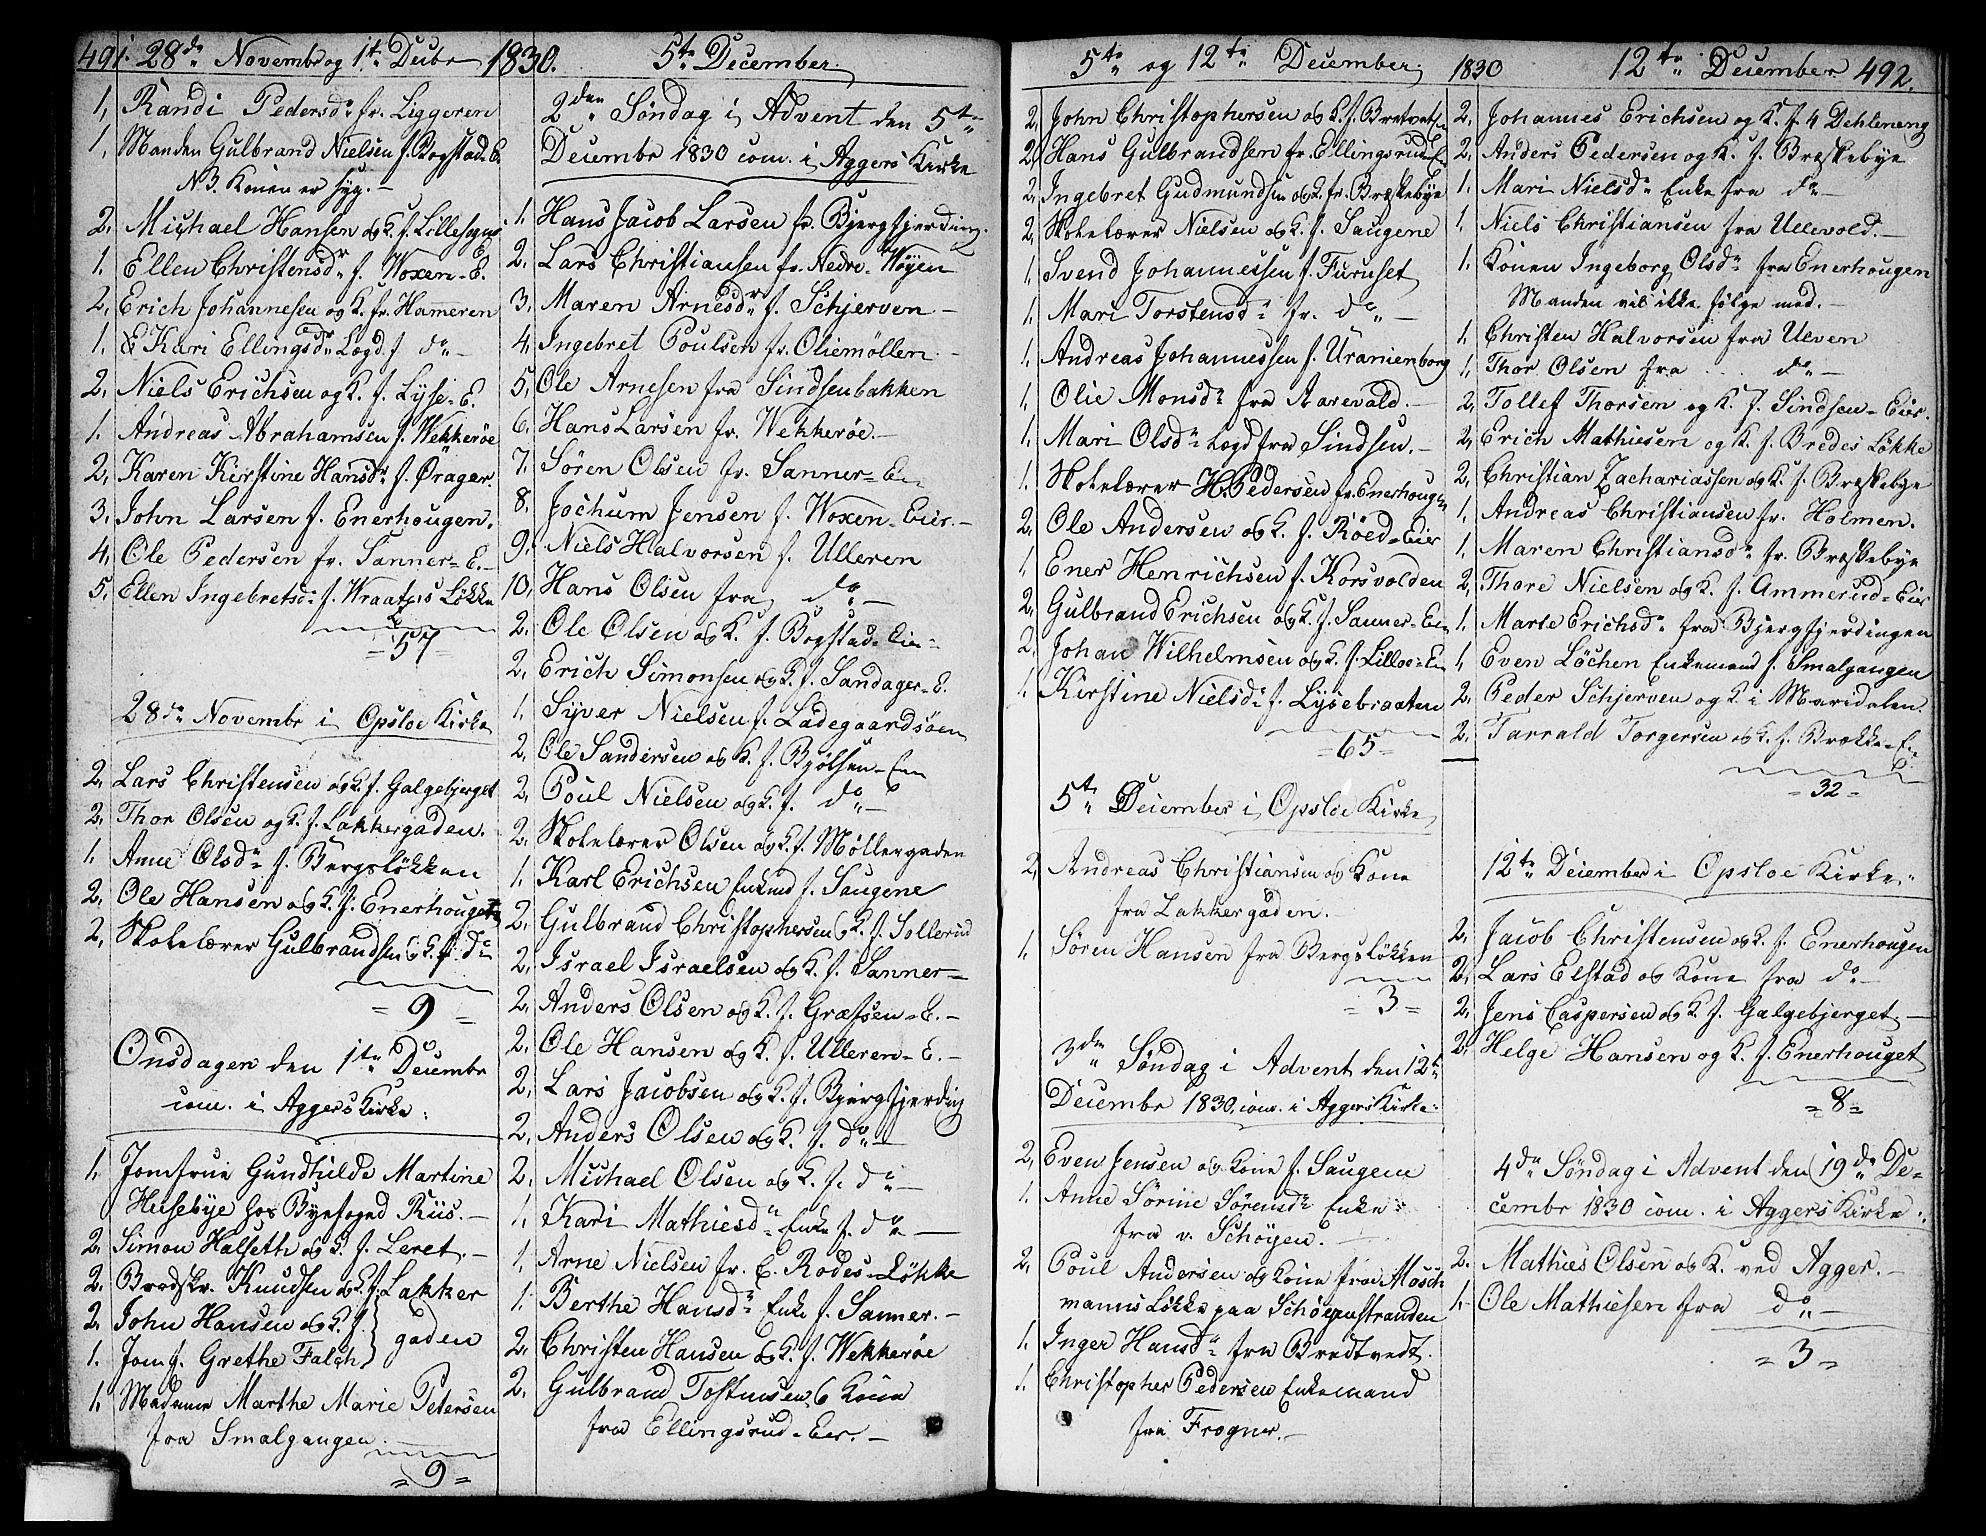 491. 28de Novembr og 1te Decbr 1830.
1, Randi Pedersdr fr. Liggeren
1, Manden Gulbrand Nielsen f. Bogstad E.
NB. Konen er syg. —
2, Michael Hansen og K. f. Lillesogns
1. Ellen Christensdr f. Woxen-E.
2, Erich Johannesen og K. fr. Hameren
1. Kari Ellingsdr Lægd f do —
2, Niels Erichsen og K. f. Lyse-E.
1. Andreas Abrahamsen f. Wækkerøe
2, Karen Kirstine Hansdr f. Ørager
3. John Larsen f. Enerhougen.
4, Ole Pedersen fr. Sanner-E. —
5. Ellen Ingebretsdr f. Wraatzes Løkke
= 57 =
28de Novembr i Opsloe Kirke
2, Lars Christensen og K. f. Galgebjerget
2. Thor Olsen og K. f. Lakkergaden.
1. Anne Olsdr f. Bergsløkken
2. Ole Hansen og K. f. Enerhouget
2, Skolelærer Gulbrandsen og K. f. do
= 9 =
Onsdagen den 1te Decembr
com. i Aggers Kirke:
1. Jomfrue Gundhilde Martine
Husebye hos Byefoged Riis. —
2, Simon Halseth og K. f. Leret. —
2. Brødskr. Knudsen og K. f. Lakker
2. John Hansen og K. f. gaden
1. Jomf. Grethe Falch
1. Madame Marthe Marie Petersen
fra Smalgangen
= 9 =
5te December.
2den Søndag i Advent den 5te
Decembr 1830 com. i Aggers Kirke
1. Hans Jacob Larsen fr. Bjergfjerding.
2. Lars Christiansen fr. Nedre-Wøyen
3. Maren Arnesdr f. Schjerven —
4, Ingebret Poulsen fr. Oliemøllen. —
5, Ole Arnesen fra Sindsenbakken
6. Hans Larsen fr. Wækkerøe. —
7. Søren Olsen fr. Sanner-E
8. Jochum Jensen f. Woxen-Eier. —
9. Niels Halvorsen f. Ulleren
10, Hans Olsen fra do —
2. Ole Olsen og K. f. Bogstad-Eie-
2. Erich Simonsen og K. f. Sandager-E.
1. Syver Nielsen f. Ladegaardsøen
2, Ole Sandersen og K. f. Bjølsen-Eie
2, Poul Nielsen og K. f. do —
2. Skolelærer Olsen og K. f. Møllergaden
1. Karl Erichsen Enkmd f. Saugene
2. Gulbrand Christophersen og K. f. Sollerud
2. Israel Israelsen og K. f. Sanner-
2. Anders Olsen og K. f. Græfsen-E. —
2. Ole Hansen og K. f. Ulleren-E. —
2, Lars Jacobsen og K. f. Bjergfjerding
2. Anders Olsen og K. f. do —
2. Michael Olsen og K. f. do —
1. Kari Mathiesdr Enke f. do —
1, Arne Nielsen fr. C. Rodes-Løkke
1. Berthe Hansdr Enke f. Sanner. —
2. Christen Hansen og K. f. Wækkerøe
2. Gulbrand Tostensen & Kone
fra Ellingsrud-Eier. —
5te og 12te December. 1830
2. John Christophersen og K. f. Bredvedt
2. Hans Gulbrandsen fr. Ellingsrud-E.
2, Ingebret Gudmundsen og K. fr. Bræskebye
2, Skolelærer Nielsen og K. f. Saugene
1. Svend Johannessen f. Furuset
1. Mari Torstensdr fr. do —
1. Andreas Johannessen f. Uranienborg
1. Olie Monsdr fra Aarevald. —
1. Mari Olsdr Lægd fra Sindsen. —
1. Skolelærer H. Pedersen fr. Enerhougen
2. Ole Andersen og K. f. Røed-Eier
1. Ener Henrichsen f. Korsvolden
2. Gulbrand Erichsen og K. f. Sanner-Eie
2. Johan Wilhelmsen og K. f. Lilloe-E
1. Kirstine Nielsdr f. Lysebraaten
= 65 =
5te December i Opsloe Kirke
2, Andreas Christiansen og Kone
fra Lakkergaden.
1. Søren Hansen fra Bergsløkken
= 3 =
3die Søndag i Advent den 12te
Decembr 1830, com. i Aggers Kirke:
2, Even Jensen og Kone f. Saugene
1. Anne Sørine Sørensdr Enke
fra v. Schøyen.
2. Poul Andersen og Kone fra Mosch
manns Løkke paa Schøyenstranden
1. Inger Hansdr fra Bredtvedt.
1. Christopher Pedersen Enkemand
fra Frogner. —
12te December 492.
2, Johannes Erichsen og K. f. 4 Dehleneng
2, Anders Pedersen og K. f. Bræskebye
1. Mari Nielsdr Enke fra do —
1. Niels Christiansen fra Ullevold. —
1. Konen Ingeborg Olsdr fra Enerhougen
Manden vil ikke følge med. —
1. Christen Halvorsen fra Ulven
1. Thor Olsen fra . . . do —
2, Tollef Thorsen og K. f. Sindsen-Eier.
2, Erich Mathiesen og K. f. Bredes Løkke
2, Christian Zachariassen og K. f. Bræskebye
1. Andreas Christiansen fr. Holmen.
1. Maren Christiansdr fr. Bræskebye
2, Thore Nielsen og K. f. Ammerud-Eier
1. Marte Erichsdr fra Bjergfjerdingen
1. Even Løchen Enkemand f. Smalgangen
2. Peder Schjerven og K. i Maridalen.
2. Tarrald Torgersen og K. f. Brække-E.
= 32 =
12te December i Opsloe Kirke.
2. Jacob Christensen og K. f. Enerhougen
2. Lars Elstad og Kone fra do —
2, Jens Caspersen og K. f. Galgebjerget —
2. Helge Hansen og K. f. Enerhouget
= 8 =
4de Søndag i Advent den 19de De-
cembr 1830 com. i Aggers Kirke:
2. Mathies Olsen og K. ved Agger. —
1. Ole Mathiesen fra do —
= 3 =